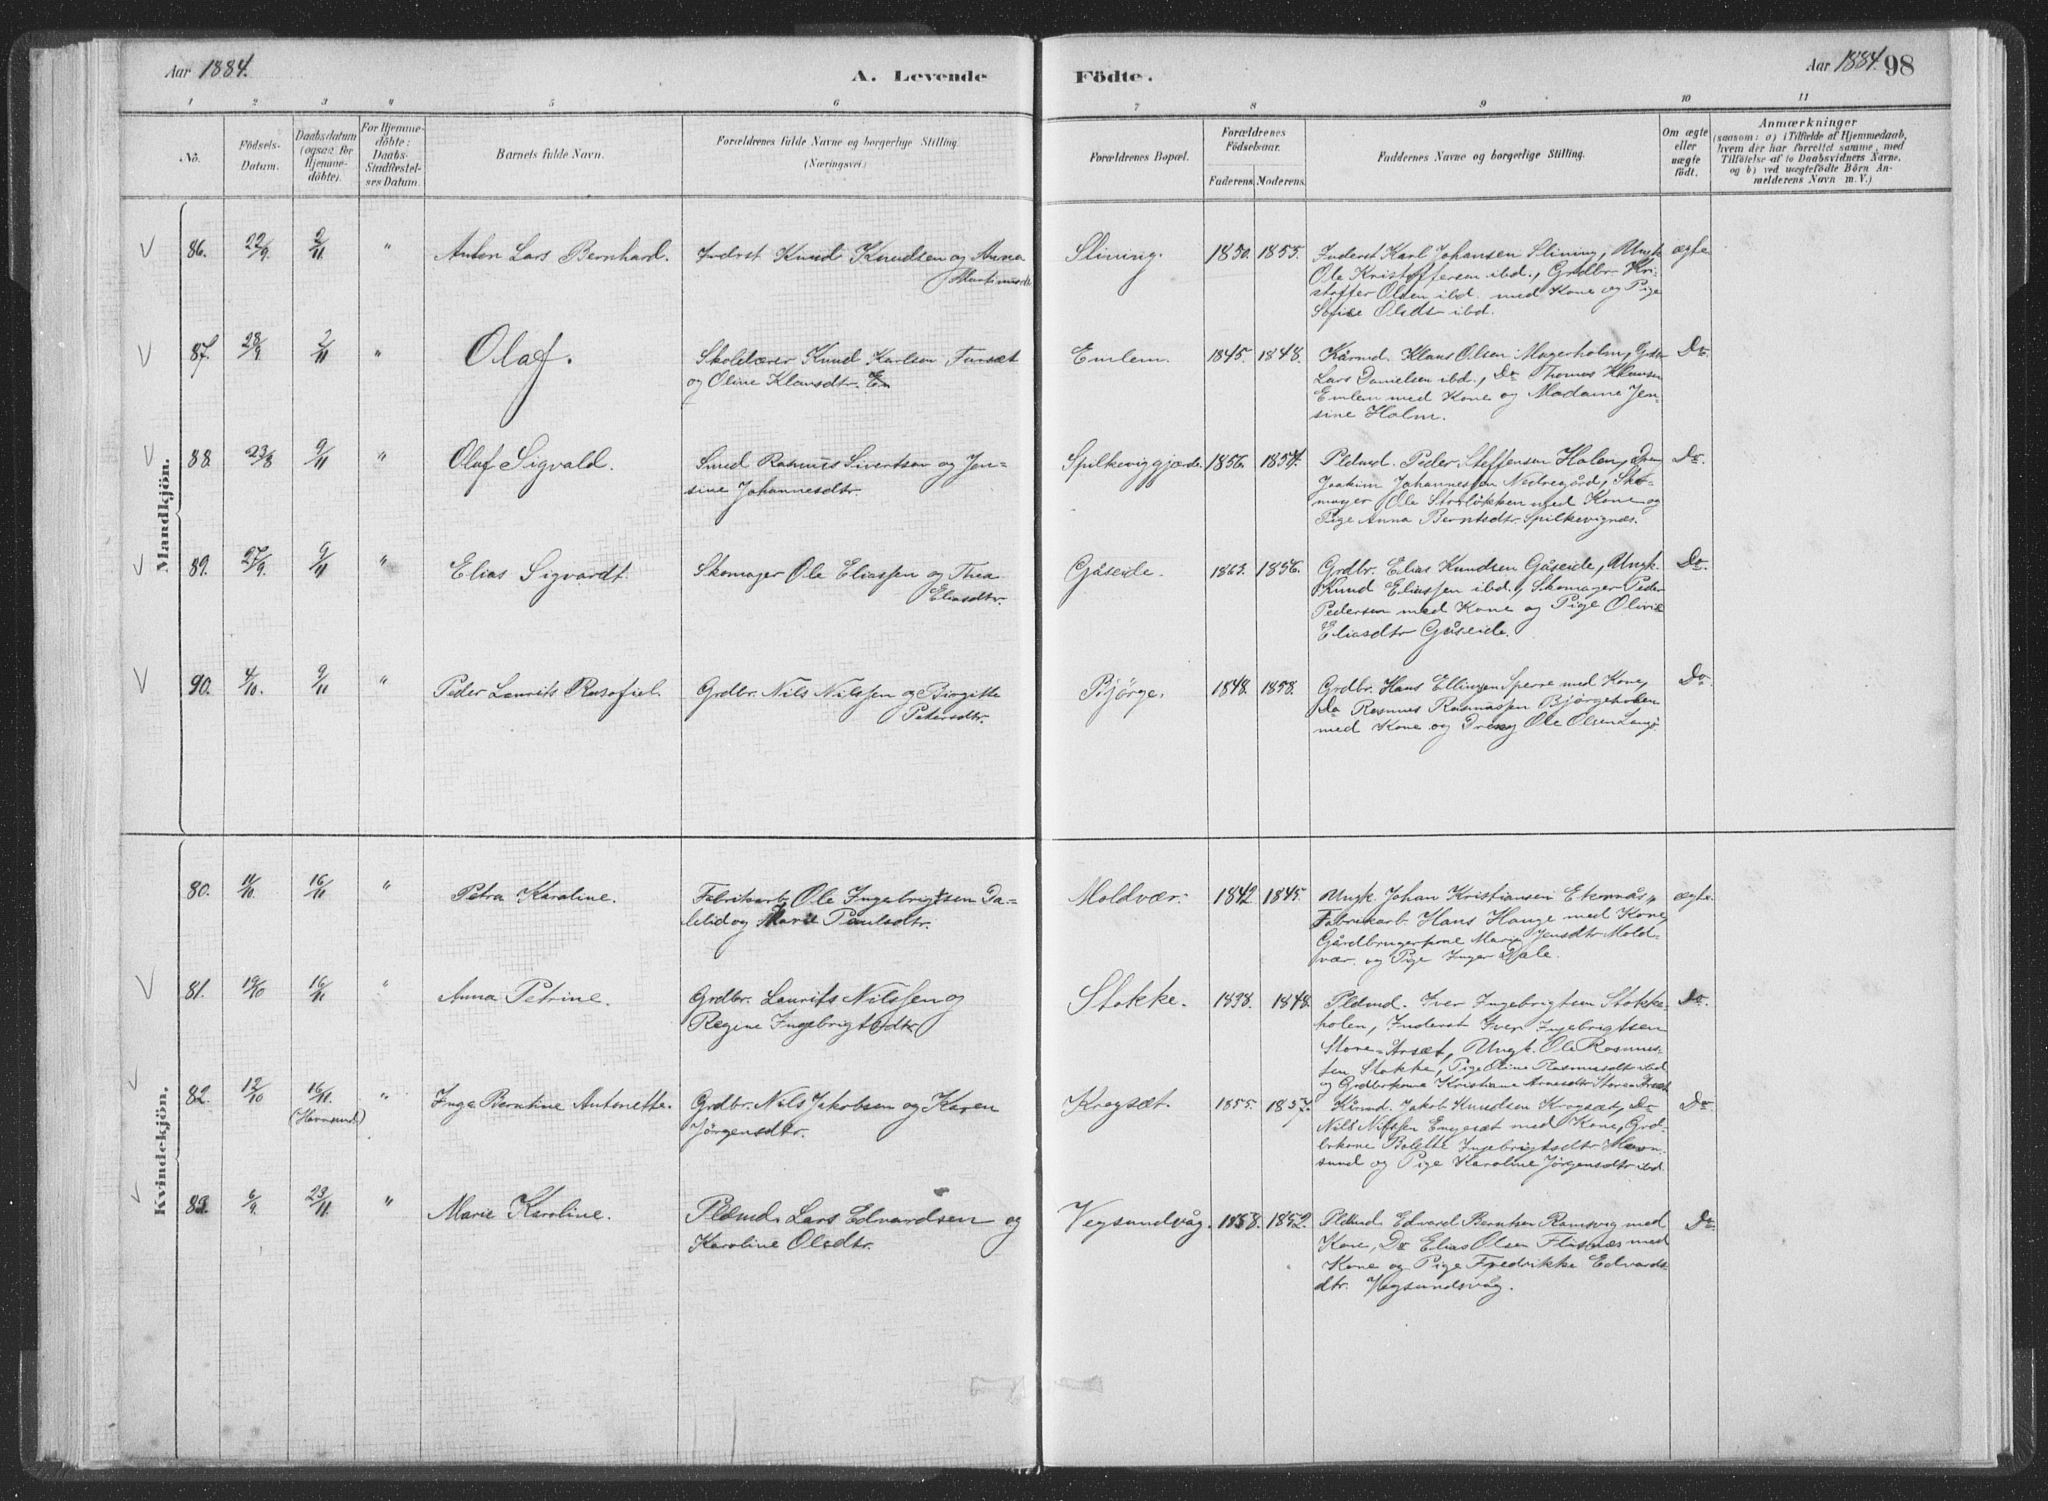 Aar 1884.
A. Levende
Födte.
Aar 1884. 98
1 2 3 4 5 6 7 8 9 10 11
No.
Födsels-
Datum.
Daabsdatum
(ogsaa for
Hjemme-
döbte).
For Hjemme-
döbte:
Daabs-
Stadfæstel-
ses Datum.
Barnets fulde Navn.
Forældrenes fulde Navne og borgerlige Stilling.
(Næringsvei.)
Forældrenes Bopæl.
Forældrenes
Födselsaar.
Faderens. Moderens.
Faddernes Navne og borgerlige Stilling.
Om ægte
eller
uægte
födt.
Anmærkninger
(saasom: a) i Tilfælde af Hjemmedaab,
hvem der har forrettet samme, med
Tilföielse af to Daabsvidners Navne,
og b) ved uægtefödte Börn An-
melderens Navn m. V.)
Mandkjön.
86. 22/9 2/11 " Anton Lars Bernhard. Inderst Knud Knudsen og Anna
Martinusdtr
Slining. 1850. 1855. Inderst Karl Johansen Slining, Ungk.
Ole Kristoffersen ibd., Grdbr. Kri-
stoffer Olsen ibd. med Kone og Pige
Sofie Olsdtr ibd.
ægte
87. 28/9 2/11 " Olaf. Skolelærer Knud Karlsen Furset
og Oline Klausdtr.
Emlem. 1845. 1848. Kårmd. Klaus Olsen Magerholm, Grdbr.
Lars Danielsen ibd., Do Thomas Klausen
Emlem med Kone og Madame Jen-
sine Holm.
Do.
88. 23/8 9/11 " Olaf Sigvald. Smed Rasmus Sivertsen og Jen-
sine Johannesdtr.
Spilkeviggjerde 1856. 1854. Pldsmd. Peder Steffensen Holen, Dreng
Joakim Johannessen Nedregård, Sko-
mager Ole Storløkken med Kone og
Pige Anna Berntsdtr. Spilkevignæs.
Do.
89. 27/9. 9/11 " Elias Sigvardt. Skomager Ole Eliassen og Thea
Eliasdtr.
Gåseide. 1862. 1856. Grdbr. Elias Knudsen Gåseide, Ungk.
Knud Eliassen ibd., Skomager Peder
Pedersen med Kone og Pige Olivie
Eliasdtr Gåseide.
Do.
90. 4/10. 9/11 " Peder Laurits Rasofiel. Grdbr. Nils Nilssen og Birgitte
Petersdtr.
Bjørge. 1848. 1858. Grdbr. Hans Ellingsen Sperre med Kone,
Do Rasmus Rasmussen Bjørgeholen
med Kone og Dreng Ole Olsen
Do.
Kvindekjön.
80. 11/10. 16/11 " Petra Karoline. Fabrikarb. Ole Ingebrigtsen Da-
lelid og Marie Paulsdtr.
Moldvær. 1842 1845. Ungk. Johan Kristiansen Eternæs,
Fabrikarb. Hans Hauge med Kone,
Gårdbrugerkone Marie Jensdtr Mold-
vær. og Pige Inger Dale.
ægte.
81. 19/10 16/11 " Anna Petrine. Grdbr. Laurits Nilssen og
Regine Ingebrigtsdtr.
Stokke. 1838. 1848. Pldsmd. Iver Ingebrigtsen Stokke-
holen, Inderst Iver Ingebrigtsen
Store-Arsæt, Ungk. Ole Rasmus-
sen Stokke, Pige Oline Rasmusdtr ibd
og Grdbrkone Kristiane Arnesdtr Store Arsæt
Do.
82. 12/10 16/11. " Inga Berntine Antonette. Grdbr. Nils Jakobsen og Karen
(Havnsund) Jørgensdtr.
Krogsæt. 1855. 1857. Kårmd. Jakob Knudsen Krogsæt, Do
Nils Nilssen Engeset med Kone, Grd-
brkone Bolette Ingebrigtsdtr Havn-
sund og Pige Karoline Jørgensdtr ibd.
Do
83. 6/9. 23/11. " Marie Karoline. Pldsmd. Lars Edvardsen og
Karoline Olsdtr.
Vegsundvåg. 1858. 1852. Pldsmd. Edvard Berntsen Ramsvig med
Kone, Do Elias Olsen Flisnæs med
Kone og Pige Fredrikke Edvards-
dtr. Vegsundsvåg.
Do.